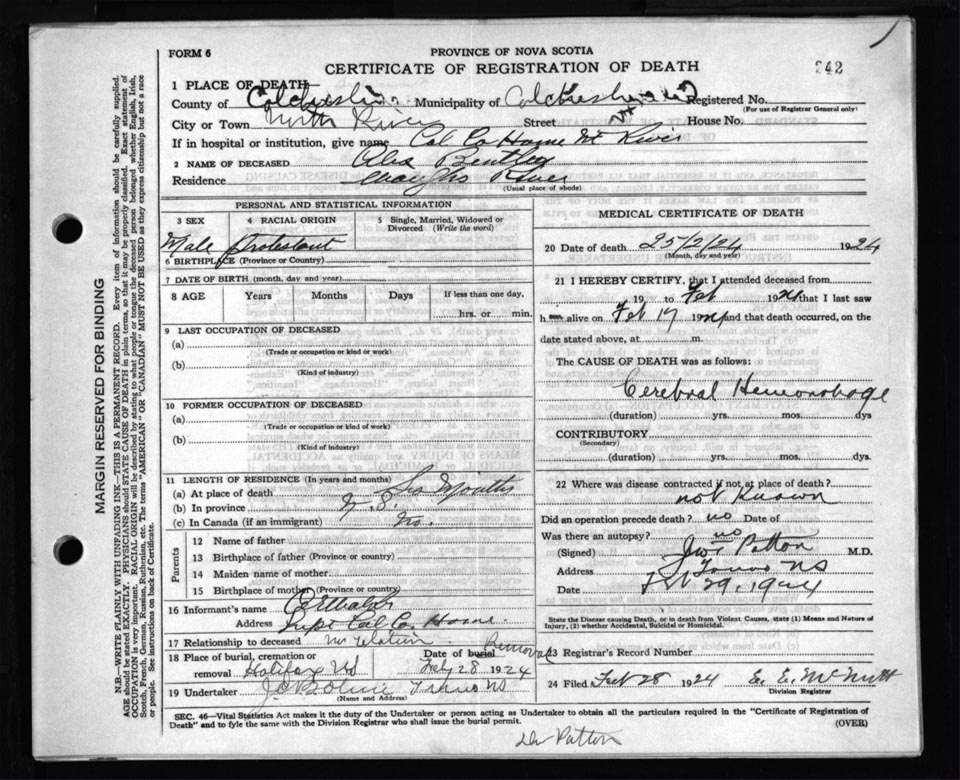 FORM 6
PROVINCE OF NOVA SCOTIA
CERTIFICATE OF REGISTRATION OF DEATH
242
1 PLACE OF DEATH
County of Municipality of Registered No.
(For use of Registrar General only)
City or Town North River Street House No.
If in hospital or institution, give name Col Co Home River
2 NAME OF DECEASED Bentley
Residence River
(Usual place of abode)
PERSONAL AND STATISTICAL INFORMATION
3 SEX 4 RACIAL ORIGIN 5 Single, Married, Widowed or Divorced (Write the word)
Male Protestant
6 BIRTHPLACE (Province or Country)
7 DATE OF BIRTH (month, day and year)
8 AGE Years Months Days If less than one day,
hrs. or min.
9 LAST OCCUPATION OF DECEASED
(a)
(Trade or occupation or kind or work)
(b)
(Kind of industry)
10 FORMER OCCUPATION OF DECEASED
(a)
(Trade or occupation or kind of work)
(b)
(Kind of industry)
11 LENGTH OF RESIDENCE (In years and months)
(a) At place of death Months
(b) In province
(c) In Canada (if an immigrant) No.
Parents
12 Name of father
13 Birthplace of father (Province or country)
14 Maiden name of mother
15 Birthplace of mother (Province or country)
16 Informant's name
Address Supt Col Co. Home.
17 Relationship to deceased no relation
18 Place of burial, cremation or removal Halifax NS Removal Date of burial Feby 28 1924
19 Undertaker Truro NS
(Name and Address)
MEDICAL CERTIFICATE OF DEATH
20 Date of death 25/2/24 1924
(Month, day and year)
21 I HEREBY CERTIFY, that I attended deceased from
19 to Feb 1924 that I last saw
h alive on Feb 17 1924 and that death occurred, on the
date stated above, at m.
The CAUSE OF DEATH was as follows:
Cerebral Hemorrhage
(duration) yrs. mos. dys
CONTRIBUTORY
(Secondary)
(duration) yrs. mos. dys.
22 Where was disease contracted if not at place of death?
not Known
Did an operation precede death? no Date of
Was there an autopsy? no
(Signed) Patton M.D.
Address Truro NS
Date Feb 29, 1924
State the Disease causing Death, or in death from Violent Causes, state (1) Means and Nature of Injury, (2) whether Accidental, Suicidal or Homicidal.
23 Registrar's Record Number
24 Filed Feb 28 1924 E. E. McNutt
Division Registrar
SEC. 46—Vital Statistics Act makes it the duty of the Undertaker or person acting as Undertaker to obtain all the particulars required in the "Certificate of Registration of
Death" and to fyle the same with the Division Registrar who shall issue the burial permit. (OVER)
Dr Patton
MARGIN RESERVED FOR BINDING
N.B.—WRITE PLAINLY WITH UNFADING INK—THIS IS A PERMANENT RECORD. Every item of information should be carefully supplied.
AGE should be stated EXACTLY. PHYSICIANS should STATE CAUSE OF DEATH in plain terms, so that it may be properly classified. Exact statement of
OCCUPATION is very important. RACIAL ORIGIN will be described by stating to what people or tongue the deceased person belonged whether English, Irish,
Scotch, French, German, Russian, Ruthenian, etc. The terms "AMERICAN" OR "CANADIAN" MUST NOT BE USED as they express citizenship but not a race
or people. See instructions on back of Certificate.